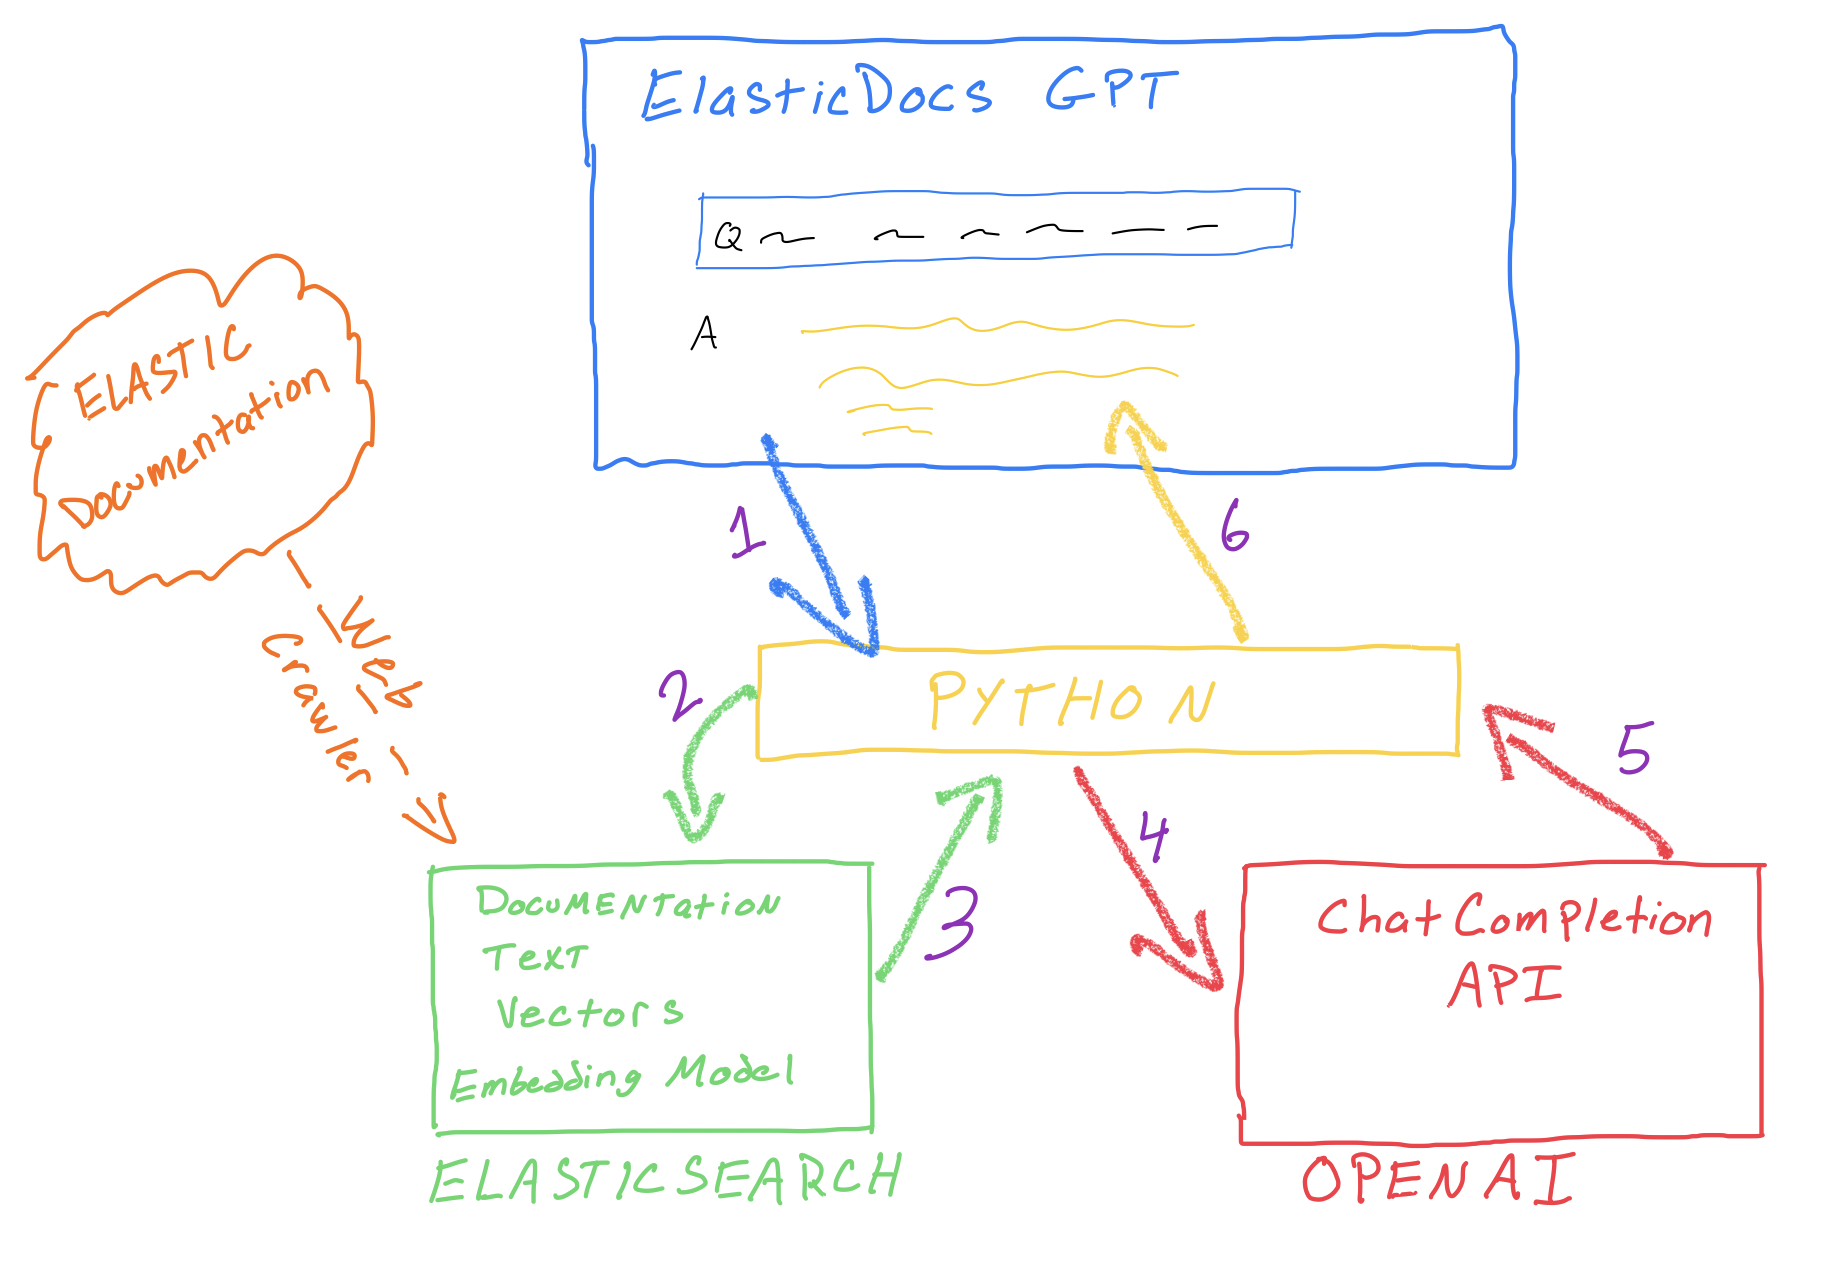 ElasticDocs GPT
Q
A
ELASTIC
Documentation
Web
Crawler
1
6
2
PYTHON
5
3
4
Documentation
Text
Vectors
Embedding Model
ELASTICSEARCH
ChatCompletion
API
OPENAI